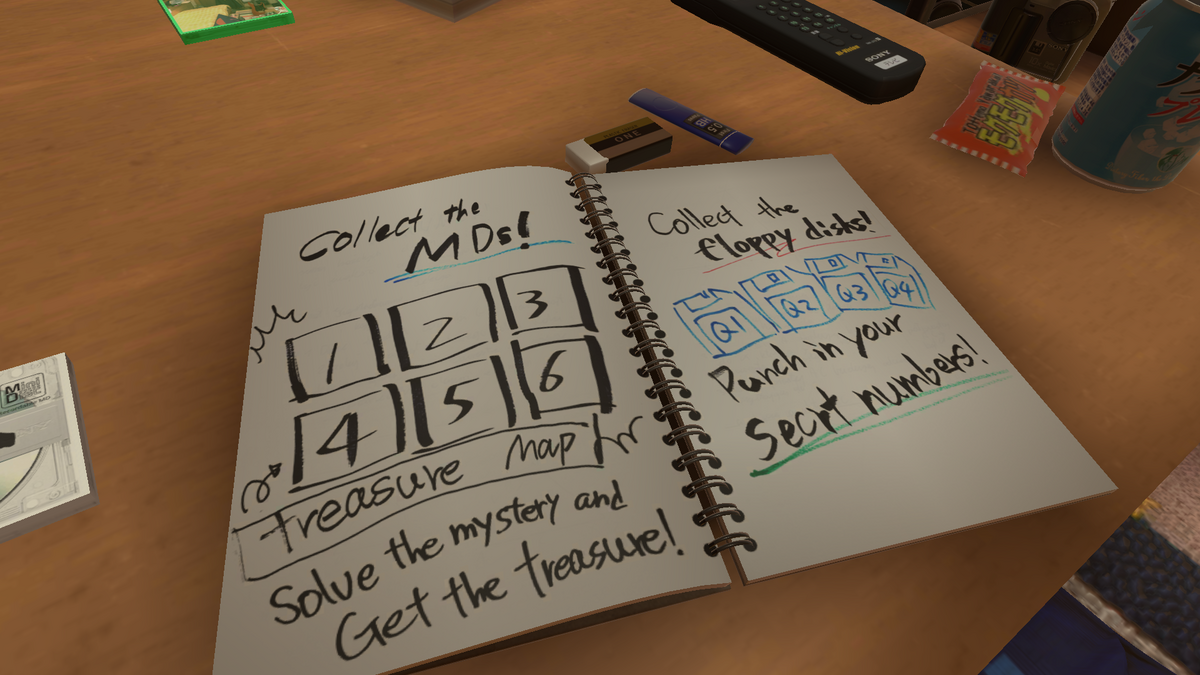 Collect the
MDs!
1 2 3
4 5 6
Treasure map
Solve the mystery and
Get the treasure!
Collect the
floppy disks!
Q1 Q2 Q3 Q4
Punch in your
Secrt numbers!
SONY
ONE